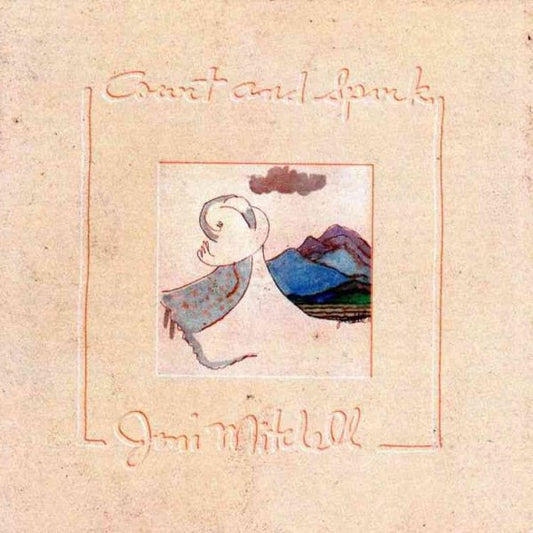 Court and Spark
Joni Mitchell